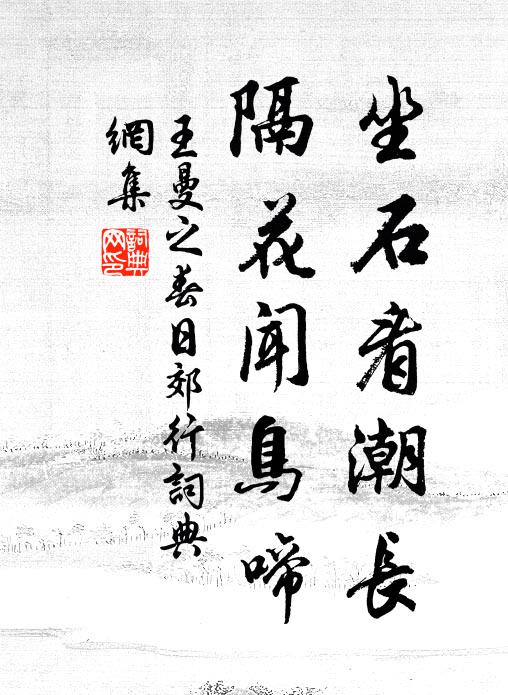 坐石看潮長
隔花聞鳥啼
王曼之春日郊行詞典
網集
詞典網印